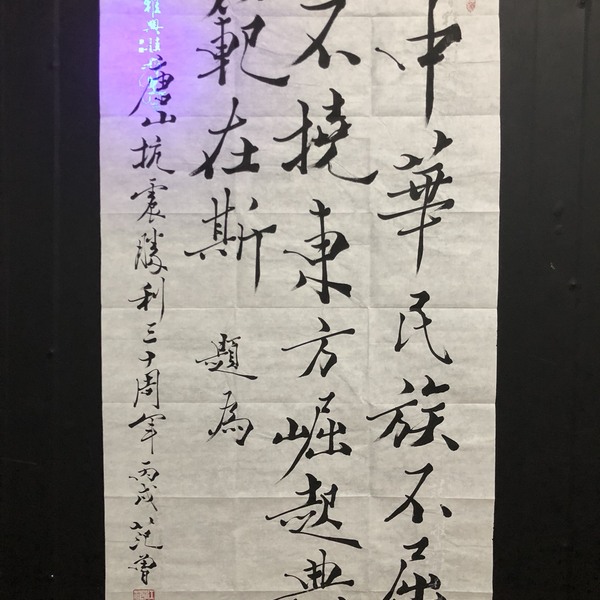 中華民族不屈
不撓東方崛起典
範在斯 題為
唐山抗震勝利三十周年丙戌范曾